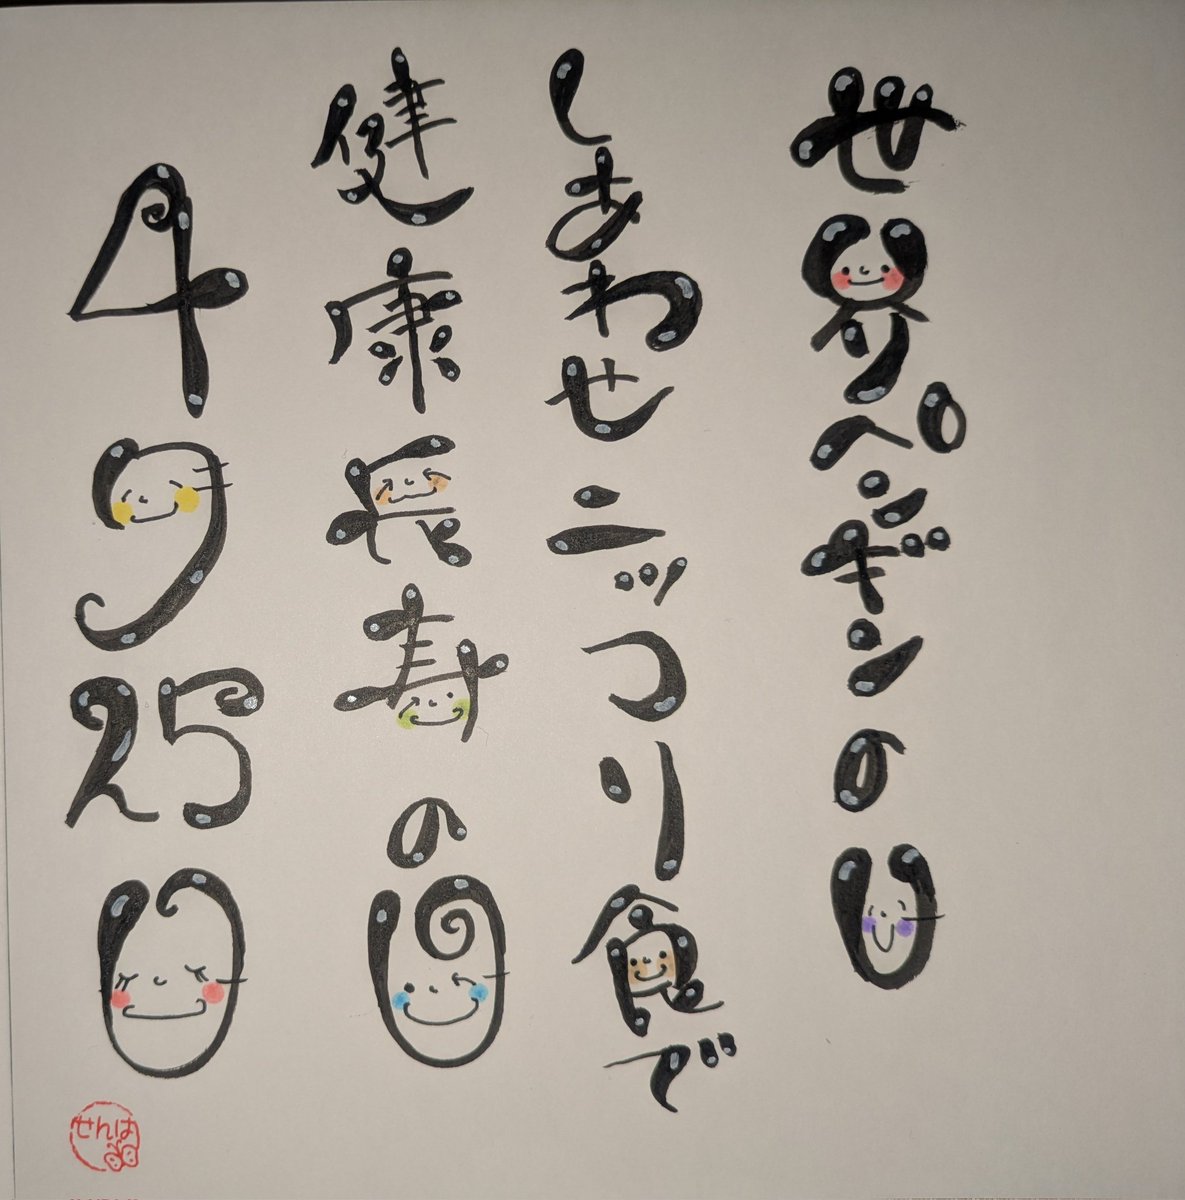 世界ペンギンの日
しあわせニッコリ食で
健康長寿の日
4月25日
せんは